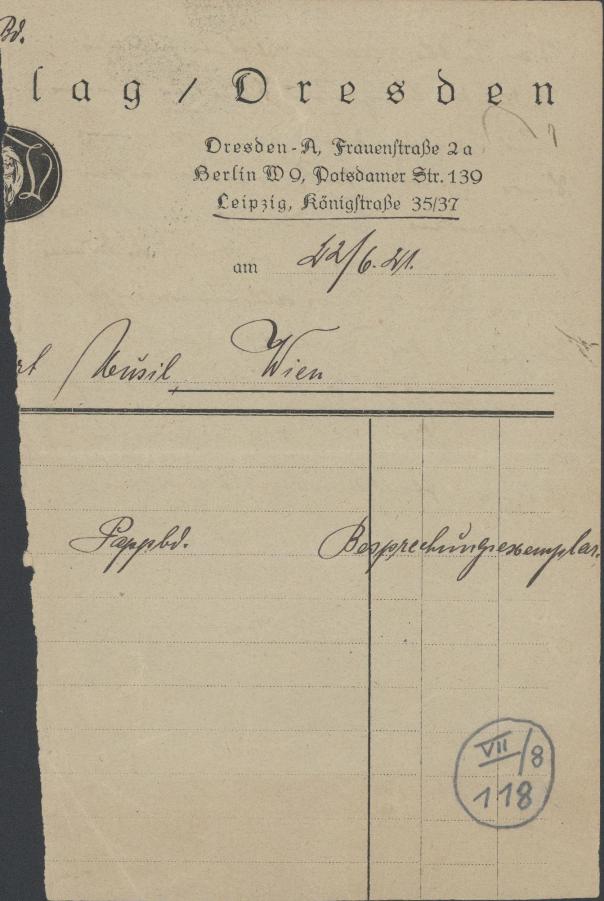 Bd.
lag / Dresden
Dresden-A, Frauenstraße 2a
Berlin W 9, Potsdamer Str. 139
Leipzig, Königstraße 35/37
am 22/6.21.
rt Musil, Wien
Pappbd. Besprechungsexemplar.
VII/8
118